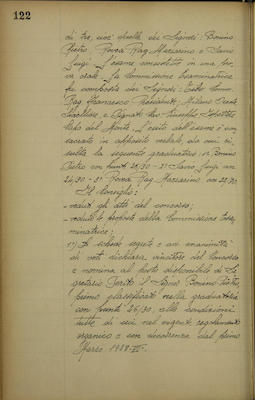 122
di tre, cioè quelle dei Signori: Bonino
Pietro - Rovea Rag. Mazzarino e Savio
Luigi. L'esame consistette in una pro-
va orale. La Commissione esaminatrice
fu composta dei Signori:
Rag. Francesco
del Monte. L'esito dell'esame è con-
sacrato in apposito verbale, da cui ri-
sulta la seguente graduatoria: 1° Bonino
Pietro con punti 26,30 - 2° Savio Luigi con
24,30 - 3° Rovea Rag. Mazzarino con 22,70
Il Consiglio:
- veduti gli atti del concorso;
- vedute le proposte della Commissione Esa-
minatrice;
1°) A schede segrete e ad unanimità
di voti dichiara vincitore del Concorso
e nomina al posto disponibile di Se-
gretario il Signor Bonino Pietro,
primo classificato nella graduatoria
con punti 26,30, alle condizioni
tutte di cui nel vigente regolamento
organico e con decorrenza dal primo
Marzo 1928-VI°.